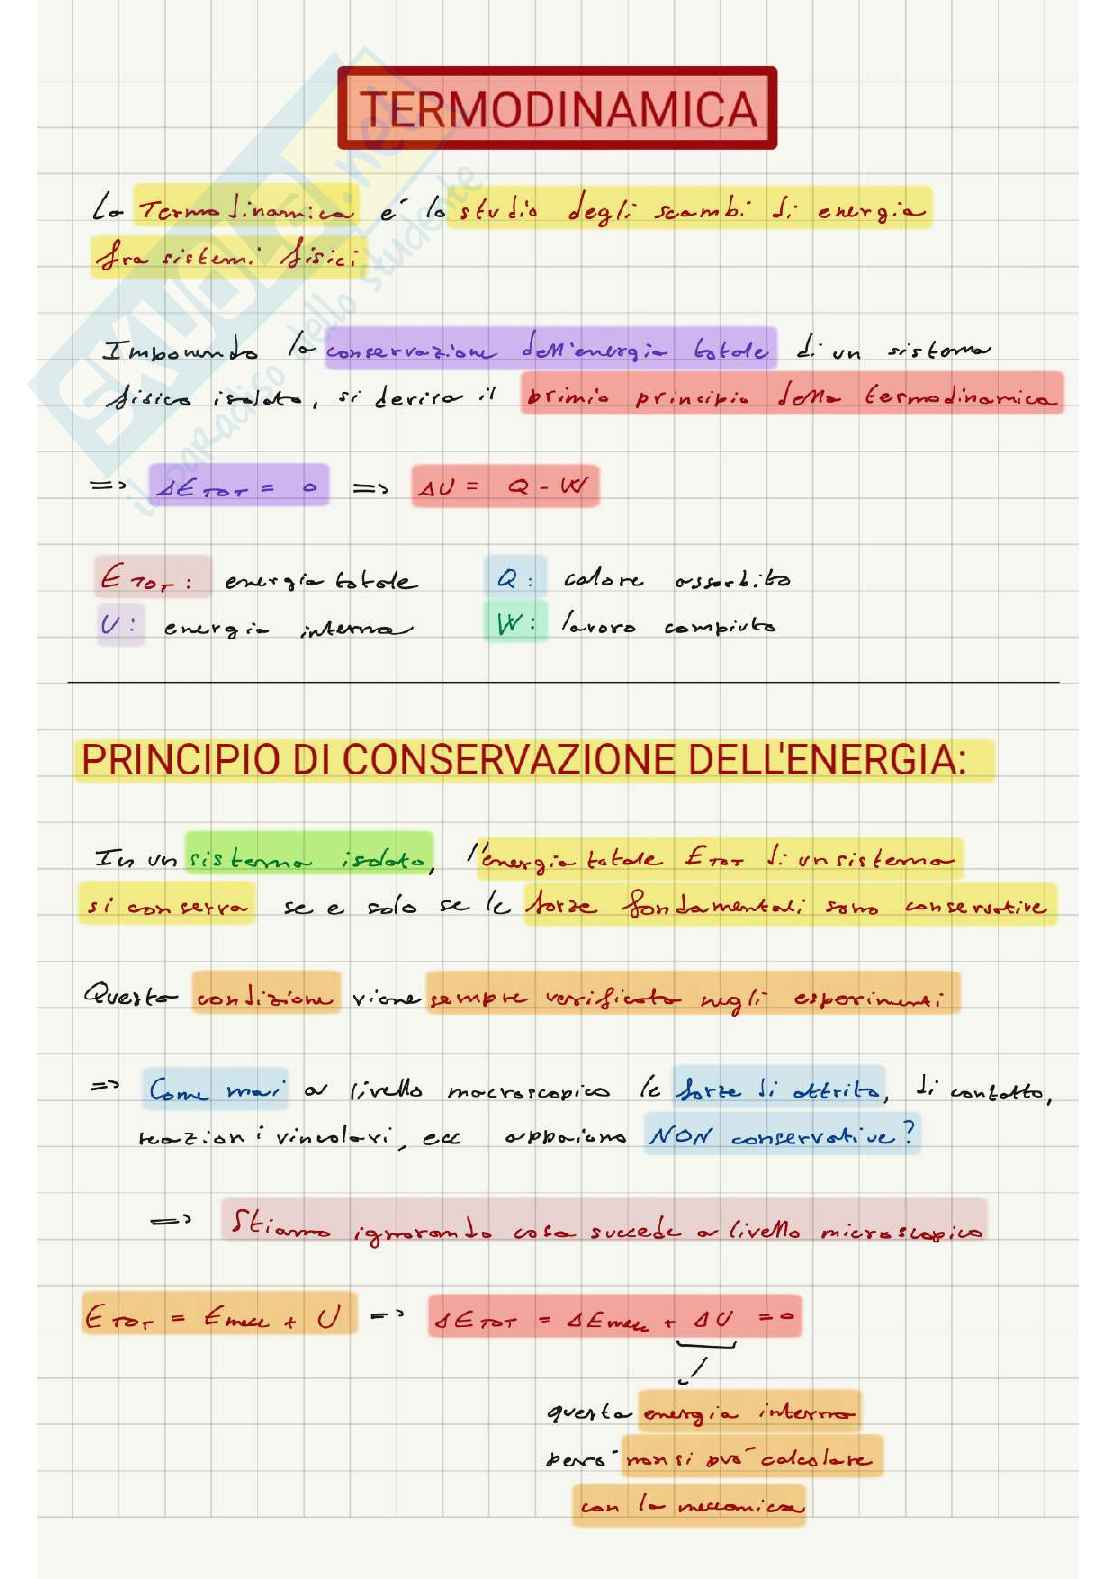 TERMODINAMICA
La Termodinamica e' lo studio degli scambi di energia
fra sistemi fisici
Imponendo la conservazione dell'energia totale di un sistema
fisico isolato, si deriva il primio principio della termodinamica
=> ΔE TOT = 0 => ΔU = Q - W
E TOT : energia totale Q : calore assorbito
U : energia interna W : lavoro compiuto
PRINCIPIO DI CONSERVAZIONE DELL'ENERGIA:
In un sistema isolato, l'energia totale E TOT di un sistema
si conserva se e solo se le forze fondamentali sono conservative
Questa condizione viene sempre verificata negli esperimenti
=> Come mai a livello macroscopico le forze di attrito, di contatto,
reazioni vincolari, ecc appaiono NON conservative?
=> Stiamo ignorando cosa succede a livello microscopico
E TOT = E mecc + U => ΔE TOT = ΔE mecc + ΔU = 0
questa energia interna
pero' non si puo' calcolare
con la meccanica
SKUOLA.net
il paradiso dello studente